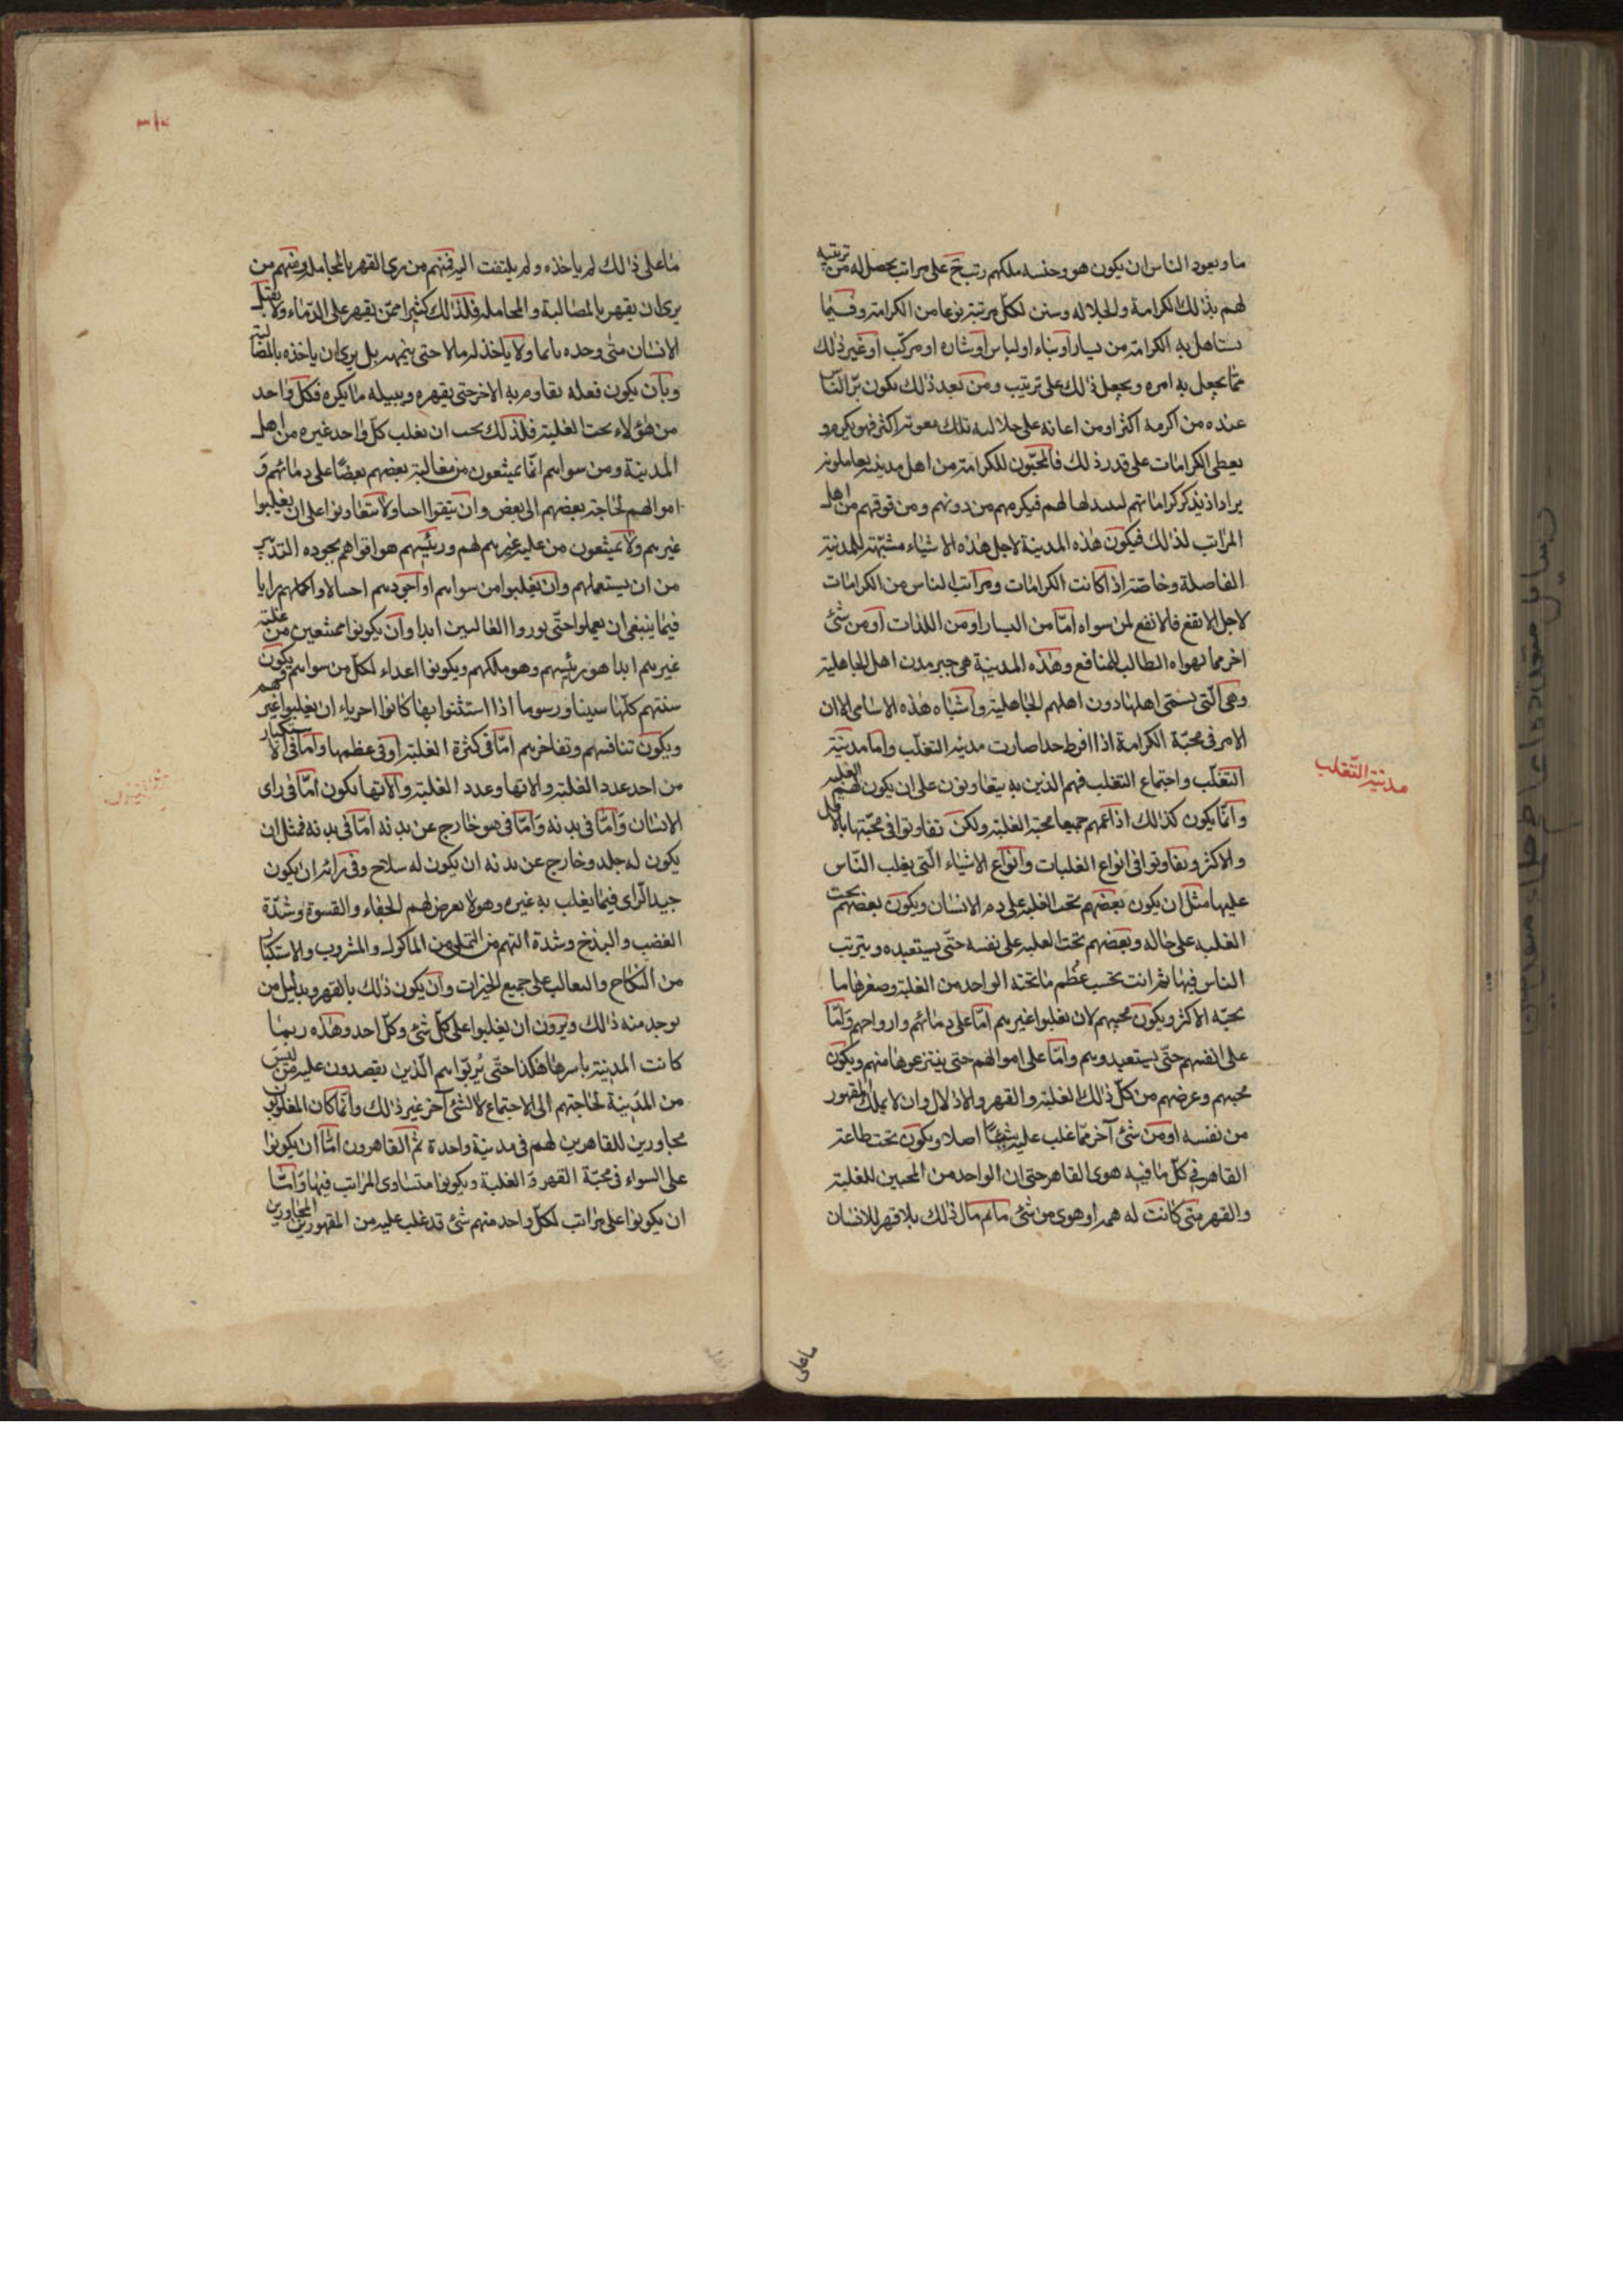 ما ويعود الناس ان يكون هو وجنسه ملكهم رتب على مراتب يحصل له من ترتيبه
لهم بذلك الكرامة والجلاله وسنن لكل مرتبة نوعا من الكرامة وفيما
يستاهل به الكرامة من يسار او بناء او لباس او شاره او مركب او غير ذلك
مما يجعل به امره ويجعل ذلك على ترتيب ومن بعد ذلك يكون برّ الناس
عنده من اكرمه اكثر او من اعانه على جلالته تلك معونة اكثر فهو يكرم و
يعطى الكرامات على قدر ذلك فالمحبّون للكرامة من اهل مدينته يعاملونه
كراماتهم لهم فيكرمهم من دونهم ومن فوقهم من اهل
المراتب لذلك فيكون هذه المدينة لاجل هذه الاشياء مشبّهة للمدينة
الفاضلة وخاصّة اذا كانت الكرامات ومراتب الناس من الكرامات
لاجل الانفع فالانفع لمن سواه امّا من اليسار او من اللذات او من شئ
اخر مما يهواه الطالب للمنافع وهذه المدينة هى خير مدن اهل الجاهلية
وهى الّتى يسمّى اهلها دون اهلهم الجاهلية واشباه هذه الاسامى الا ان
الامر فى محبّة الكرامة اذا افرط جدا صارت مدينة التغلّب واما مدينة
التغلّب واجتماع التغلب فهم الذين به يتعاونون على ان يكون لهم الغلبه
وانّما يكون كذلك اذا عمّهم جميعا محبة الغلبة ولكن تفاوتوا فى محبّتها بالاقل
والاكثر وتفاوتوا فى انواع الغلبات وانواع الاشياء الّتى يغلب النّاس
عليها مثل ان يكون بعضهم يحب الغلبة على دم الانسان ويكون بعضهم يحب
الغلبه على ماله وبعضهم يحب الغلبه على نفسه حتّى يستعبده ويترتب
الناس فيها مراتب بحسب عظم ما يحبّه الواحد من الغلبة وصغرها ما
يحبّه الاكثر ويكون محبتهم لان يغلبوا غيرهم امّا على دمائهم وارواحهم وامّا
على انفسهم حتّى يستعبدوهم وامّا على اموالهم حتى ينتزعوها منهم ويكون
محبتهم وغرضهم من كلّ ذلك الغلبة والقهر والاذلال وان لا يملك المقهور
من نفسه او من شئ آخر ممّا غلب عليه شيئًا اصلا ويكون تحت طاعة
القاهر فى كلّ ما فيه هوى القاهر حتى ان الواحد من المحبين للغلبة
والقهر متى كانت له همة او هوى من شئ ما ثم نال ذلك بلا قهر للانسان
ماعلى
مدينة التّغلب
ما على ذلك لم ياخذه ولم يلتفت اليه فمنهم من يرى القهر بالمجامله ومنهم من
يرى ان يقهر بالمصالبة والمجاملة فلذلك كثيرا ممّن يقهر على الدّماء ولا يقتل
الانسان متى وجده نائما ولا ياخذ له مالا حتى ينبهه بل يرى ان ياخذه بالمصالبة
وبان يكون فعله يقاومه به الاخر حتى يقهره وينيله ما يكره فكلّ واحد
من هؤلاء يحب الغلبة فلذلك يحب ان يغلب كلّ واحد غيره من اهل
المدينة ومن سواهم انّما يمتنعون من مغالبة بعضهم بعضًا على دمائهم و
اموالهم لحاجة بعضهم الى بعض وان يبقوا احياء ولان يتعاونوا على ان يغلبوا
غيرهم ولان يمتنعون من غلبة غيرهم لهم ورئيسهم هو اقواهم بجوده التدبير
من ان يستعملهم وان يغلبوا من سواهم او اجودهم احتيالا واكملهم رايا
فيما ينبغى ان يعملوا حتّى يوروا الغالبين ابدا وان يكونوا ممتنعين من غلبة
غيرهم ابدا هو رئيسهم وهو ملكهم ويكونوا اعداء لكلّ من سواهم ويكون
سننهم كلّها سننا ورسوما اذا استنّوا بها كانوا احرياء ان يغلبوا غيرهم
ويكون تنافسهم وتفاخرهم امّا فى كثرة الغلبة او فى عظمها وامّا فى الاستكثار
من احد عدد الغلبة والاتها وعدد الغلبة والاتها يكون امّا فى راى
الانسان وامّا فى بدنه وامّا فى هو خارج عن بدنه امّا فى بدنه فمثل ان
يكون له جلد وخارج عن بدنه ان يكون له سلاح وفى رائه ان يكون
جيد الرّاى فيما يغلب به غيره وهولا يعرض لهم الجفاء والقسوة وشدّة
الغضب والبذخ وشدة النهم من التملى من الماكول والمشروب والاستكثار
من النّكاح والتغالب على جميع الخيرات وان يكون ذلك بالقهر وبدليل من
يوجد منه ذلك ويرون ان يغلبوا على كلّ شئ وكلّ احد وهذه ربما
كانت المدينة باسرها هكذا حتّى يرتبوا هم الّذين يقصدون غلبة من ليس
من المدينة لحاجتهم الى الاجتماع لا لشئ آخر غير ذلك وانّما كان المغلوبون
مجاورين للقاهرين لهم فى مدينة واحدة ثم القاهرون امّا ان يكونوا
على السواء فى محبّة القهر والغلبة ويكونوا متساوى المراتب فيها وامّا
ان يكونوا على مراتب لكلّ واحد منهم شئ قد غلب عليه من المقهورين المجاورين